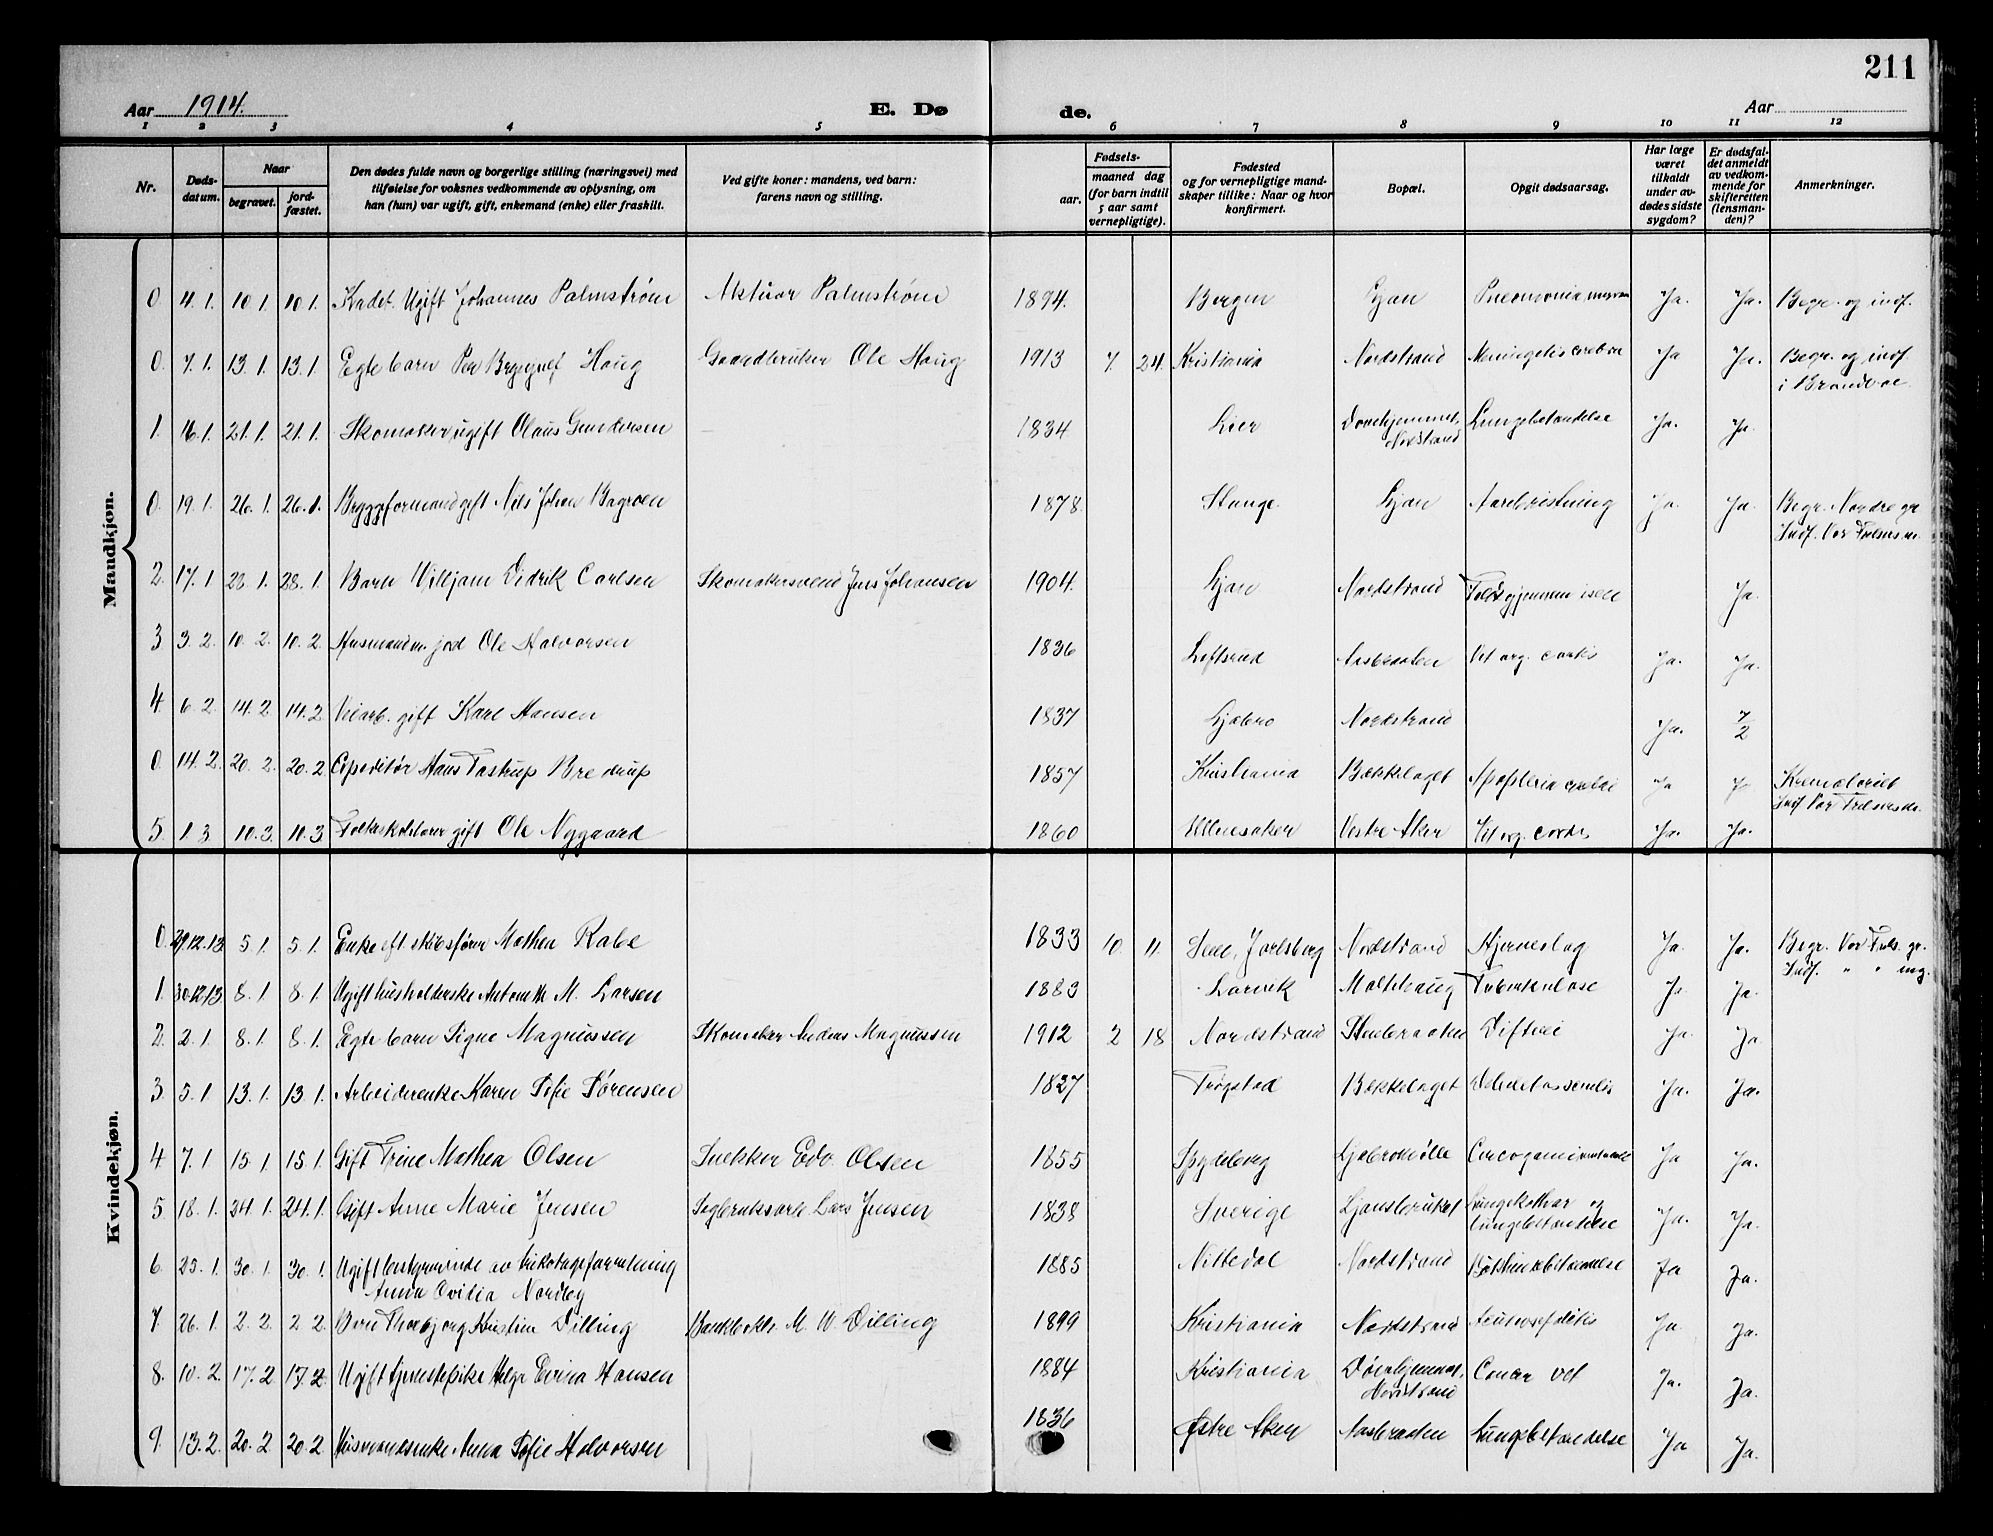 211
Aar 1914. E. Dø de. Aar
1 2 3 4 5 6 7 8 9 10 11 12
Nr. Døds-datum. Naar begravet. jord-fæstet. Den dødes fulde navn og borgerlige stilling (næringsvei) med tilføielse for voksnes vedkommende av oplysning, om han (hun) var ugift, gift, enkemand (enke) eller fraskilt. Ved gifte koner: mandens, ved barn: farens navn og stilling. Fødsels- aar. maaned dag (for barn indtil 5 aar samt vernepligtige). Fødested og for vernepligtige mandskaper tillike: Naar og hvor konfirmert. Bopæl. Opgit dødsaarsag. Har læge været tilkaldt under avdødes sidste sygdom? Er dødsfaldet anmeldt av vedkommende for skifteretten (lensmanden)? Anmerkninger.
Mandkjøn.
0 4.1. 10.1. 10.1. Kadet Ugift Johannes Palmstrøm Aktuar Palmstrøm 1894. Bergen Ljan Pneumonia Ja. Ja. Begr. og indf.
0. 7.1. 13.1. 13.1 Egte barn Per Haug Gaardbruker Ole Haug 1913 7. 24. Kristiania Nordstrand Ja Ja. Begr. og indf.
i
1. 16.1. 21.1. 21.1. Skomaker ugift Olaus Gundersen 1834 Lier Lungebetændelse Ja. Ja.
Nordstrand
0. 19.1. 26.1. 26.1. Bryggeformand gift Nils Johan 1878. Stange Ljan Aarebristning Ja. Ja. Begr. Nordre gr.
Indf. Vor Frelsers m.
2. 17.1 28.1. 28.1. Barn Villjam Didrik Carlsen Skomakersvend Jens Johansen 1904. Ljan Nordstrand gjennem isen Ja.
3 3.2. 10.2. 10.2. Husmand m. jord Ole Halvorsen 1836 Loftsrud Aasbraaten Vit. org. cordis Ja. Ja.
4. 6.2. 14.2 14.2. Veiarb. gift Karl Hansen 1837 Ljabro Nordstrand Ja. 7/2
0. 14.2. 20.2. 20.2 Expeditør Hans Tostrup 1857 Kristiania Bækkelaget Apoplexia Ja Ja Krematoriet
Indf. Vor Frelsers m.
5. 1.3 10.3. 10.3 Folkeskolelærer gift Ole Nygaard 1860 Ullensaker Vestre Aker Vit. org. cordis Ja. Ja.
Kvindekjøn.
0. 29.12.13 5.1. 5.1. Enke eft. skibsfører Mathea Rabe 1833 10 11. Sem, Jarlsberg Nordstrand Hjerneslag Ja. Ja. Begr. Vor Frels. gr.
Indf. " "
1. 30.12.13 8.1 8.1. Ugift husholderske M. Larsen 1883 Larvik Malmhaug Tuberkulose Ja Ja.
2. 2.1. 8.1. 8.1. Egte barn Signe Magnussen Skomaker Anders Magnussen 1912 2 18 Nordstrand Difteri Ja. Ja
3. 5.1. 13.1. 13.1. Arbeiderenke Karen Sofie Sørensen 1827 Trøgstad Bækkelaget Ja. Ja.
4. 7.1 15.1. 15.1. Gift Trine Mathea Olsen Snekker Edv. Olsen 1855 Spydeberg Ja Ja.
5. 18.1. 24.1. 24.1. Gift Anne Marie Jensen Lars Jensen 1838 Sverige Ljansbruket Lungekatarr og
lungebetændelse Ja. Ja.
6. 25.1. 30.1. 30.1. Ugift bestyrerinde av trikotageforretning 1885 Nittedal Nordstrand Ja Ja.
Anna Ovidia Nordby
7. 26.1. 2.2. 2.2. Barn Thorbjørg Kristine Dilling M. W. Dilling 1899 Kristiania Nordstrand Ja Ja.
8. 10.2. 17.2 17.2 Ugift tjenestepike Hansen 1884 Kristiania Cancer Ja. Ja.
Nordstrand
9. 13.2. 20.2 20.2. Husmandsenke Anna Sofie Halvorsen 1836 Østre Aker Aasbraaten Lungebetændelse Ja Ja.